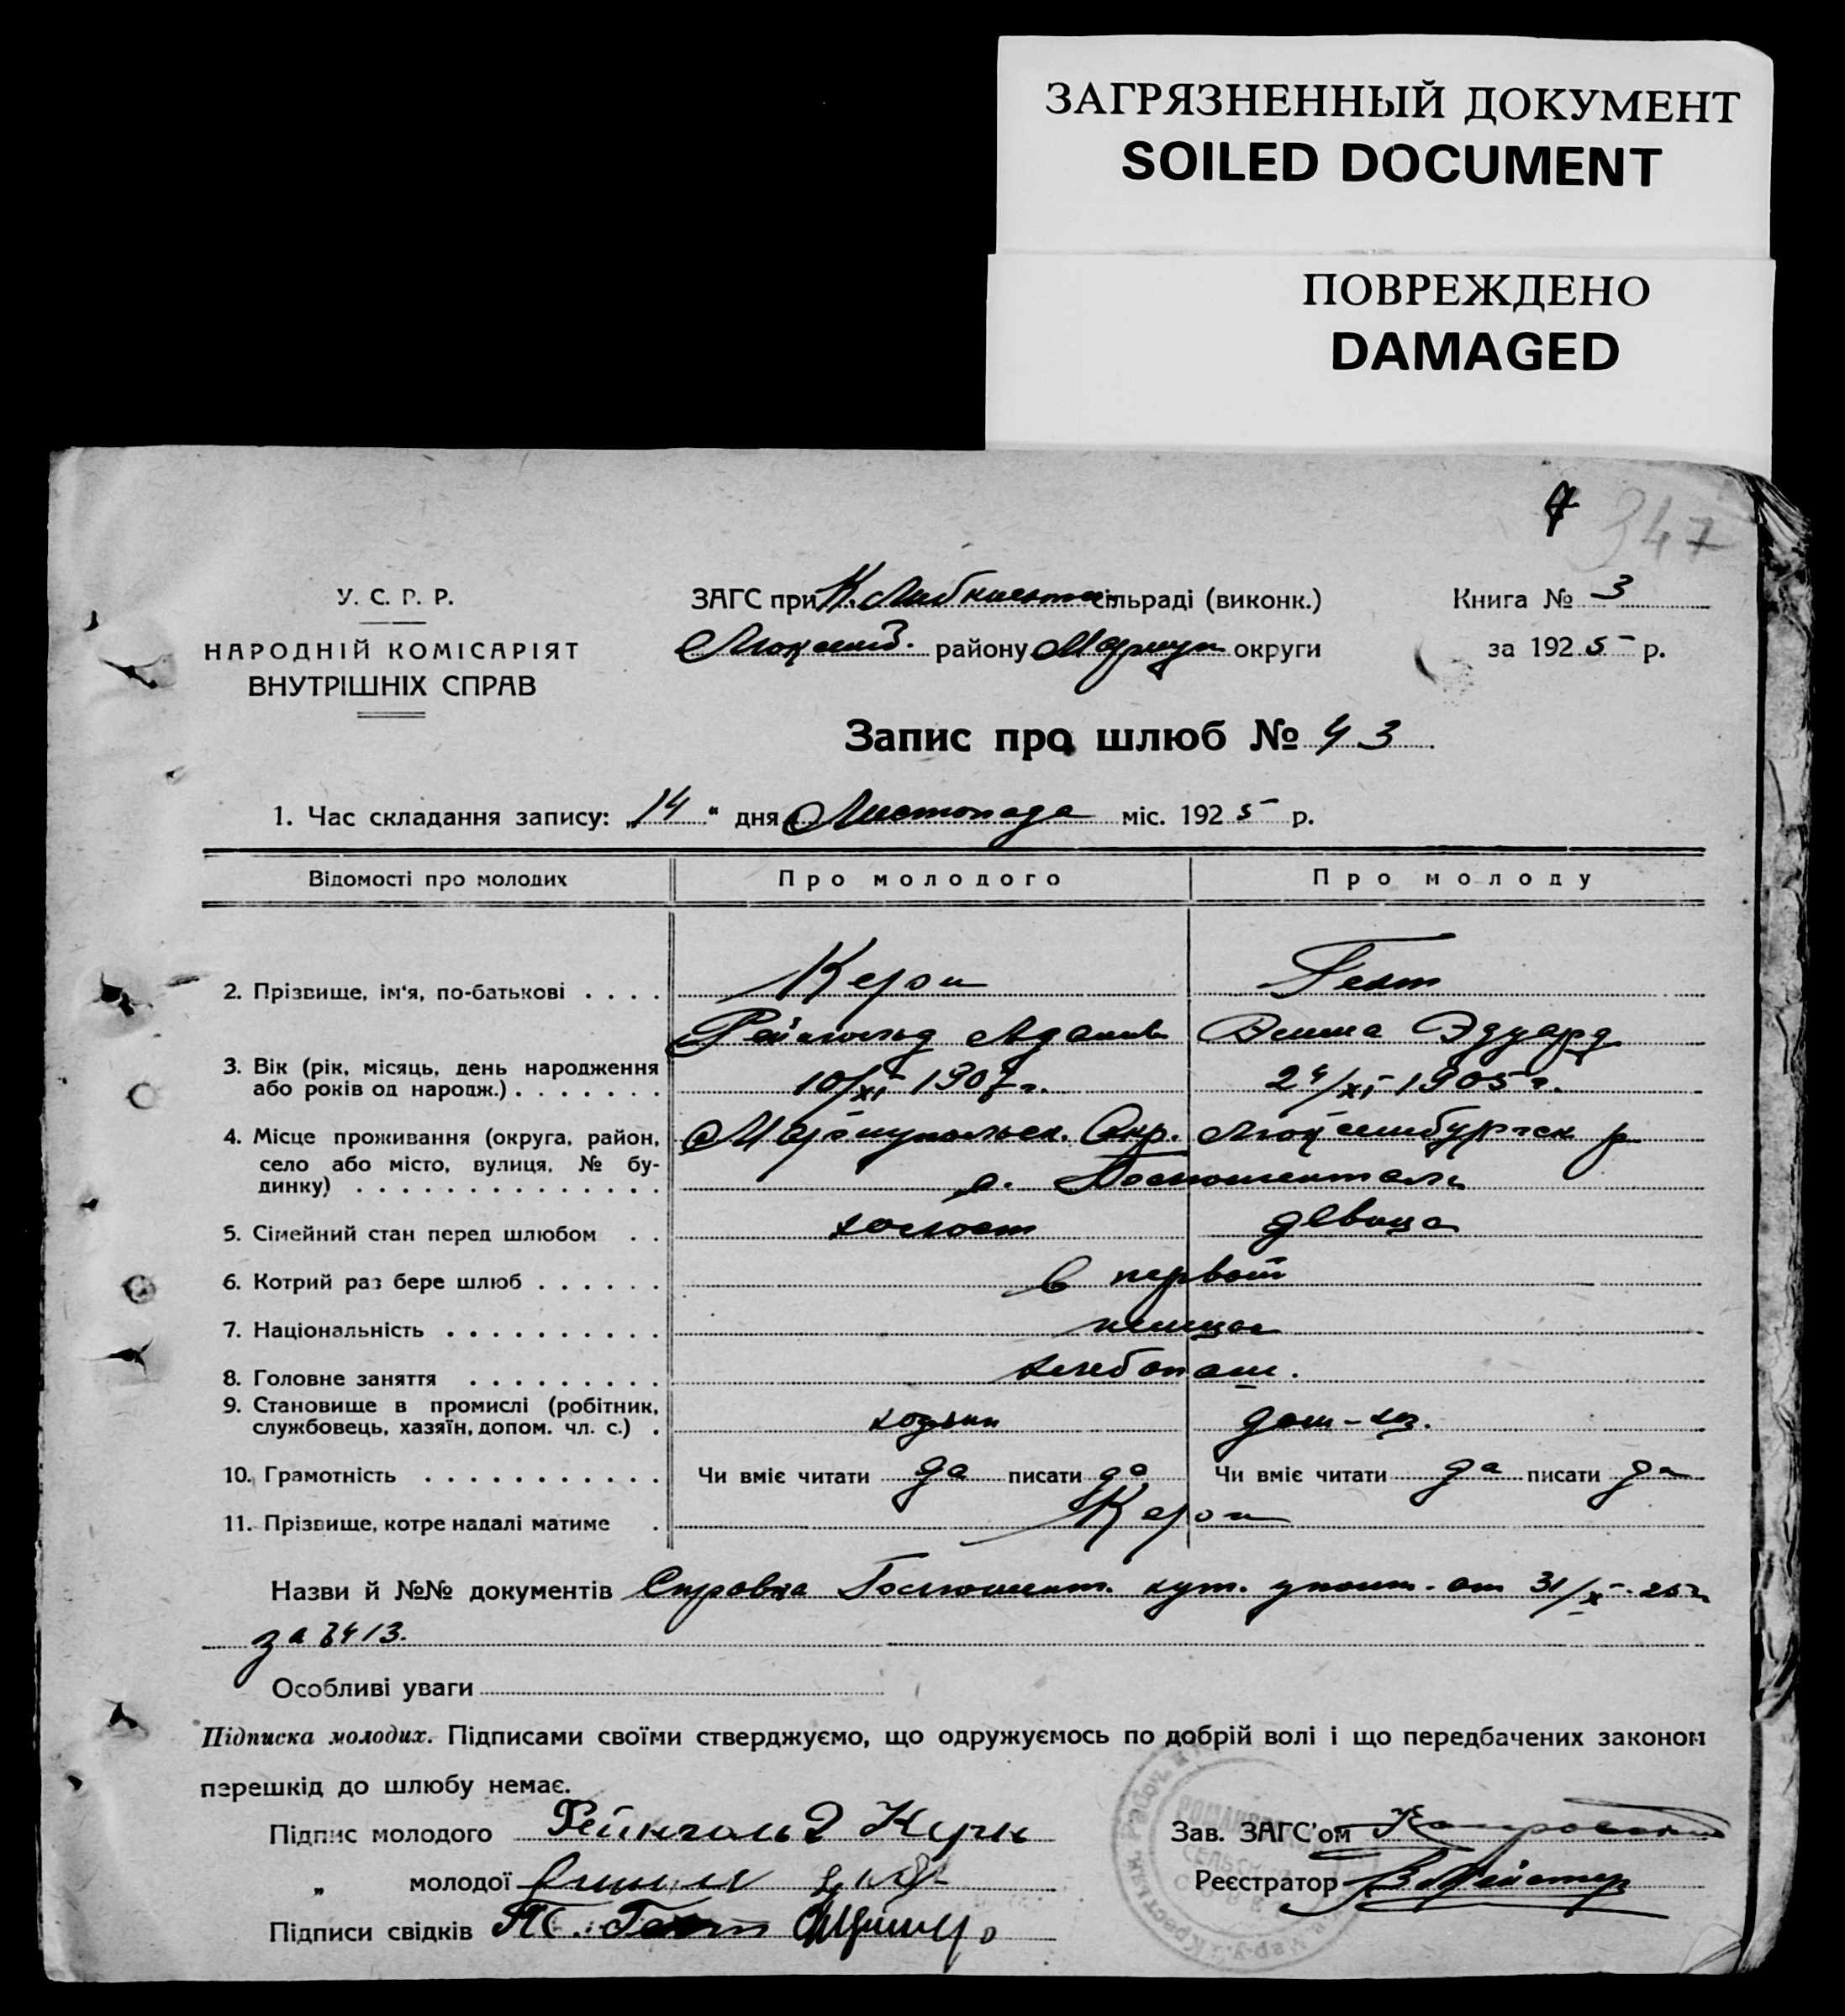 ЗАГРЯЗНЕННЫЙ ДОКУМЕНТ
SOILED DOCUMENT
ПОВРЕЖДЕНО
DAMAGED
347
У. С. Р. Р.
НАРОДНІЙ КОМІСАРІЯТ
ВНУТРІШНІХ СПРАВ
ЗАГС при К. Либкнехта сільраді (виконк.)
Люксемб. району Мариуп округи
Книга № 3
за 1925 р.
Запис про шлюб № 43
1. Час складання запису: „14" дня Листопада міс. 1925 р.
Відомості про молодих Про молодого Про молоду
2. Прізвище, ім'я, по-батькові . . . . Керн Гехт
Рейнгольд Адамов Эмма Эдуард
3. Вік (рік, місяць, день народження
або років од народж.) . . . . . . . 10/XI 1907 г. 24/XI 1905 г.
4. Місце проживання (округа, район, Мариупольск. Окр. Люксембургск р
село або місто, вулиця, № бу-
динку) . . . . . . . . . . . . . .
5. Сімейний стан перед шлюбом . . холост девица
6. Котрий раз бере шлюб . . . . . . в первой
7. Національність . . . . . . . . . . немцы
8. Головне заняття . . . . . . . . . хлебопаш.
9. Становище в промислі (робітник,
службовець, хазяїн, допом. чл. с.) . хозяин дом-хоз.
10. Грамотність . . . . . . . . . . . Чи вміє читати да писати да Чи вміє читати да писати да
11. Прізвище, котре надалі матиме . Керн
Назви й №№ документів Справка хут. уполн. от 31/X 25 г
за 413.
Особливі уваги
Підписка молодих. Підписами своїми стверджуємо, що одружуємось по добрій волі і що передбачених законом
перешкід до шлюбу немає.
Підпис молодого Рейнгольд Керн
Зав. ЗАГС'ом
„ молодої
Реєстратор
Підписи свідків Гехт